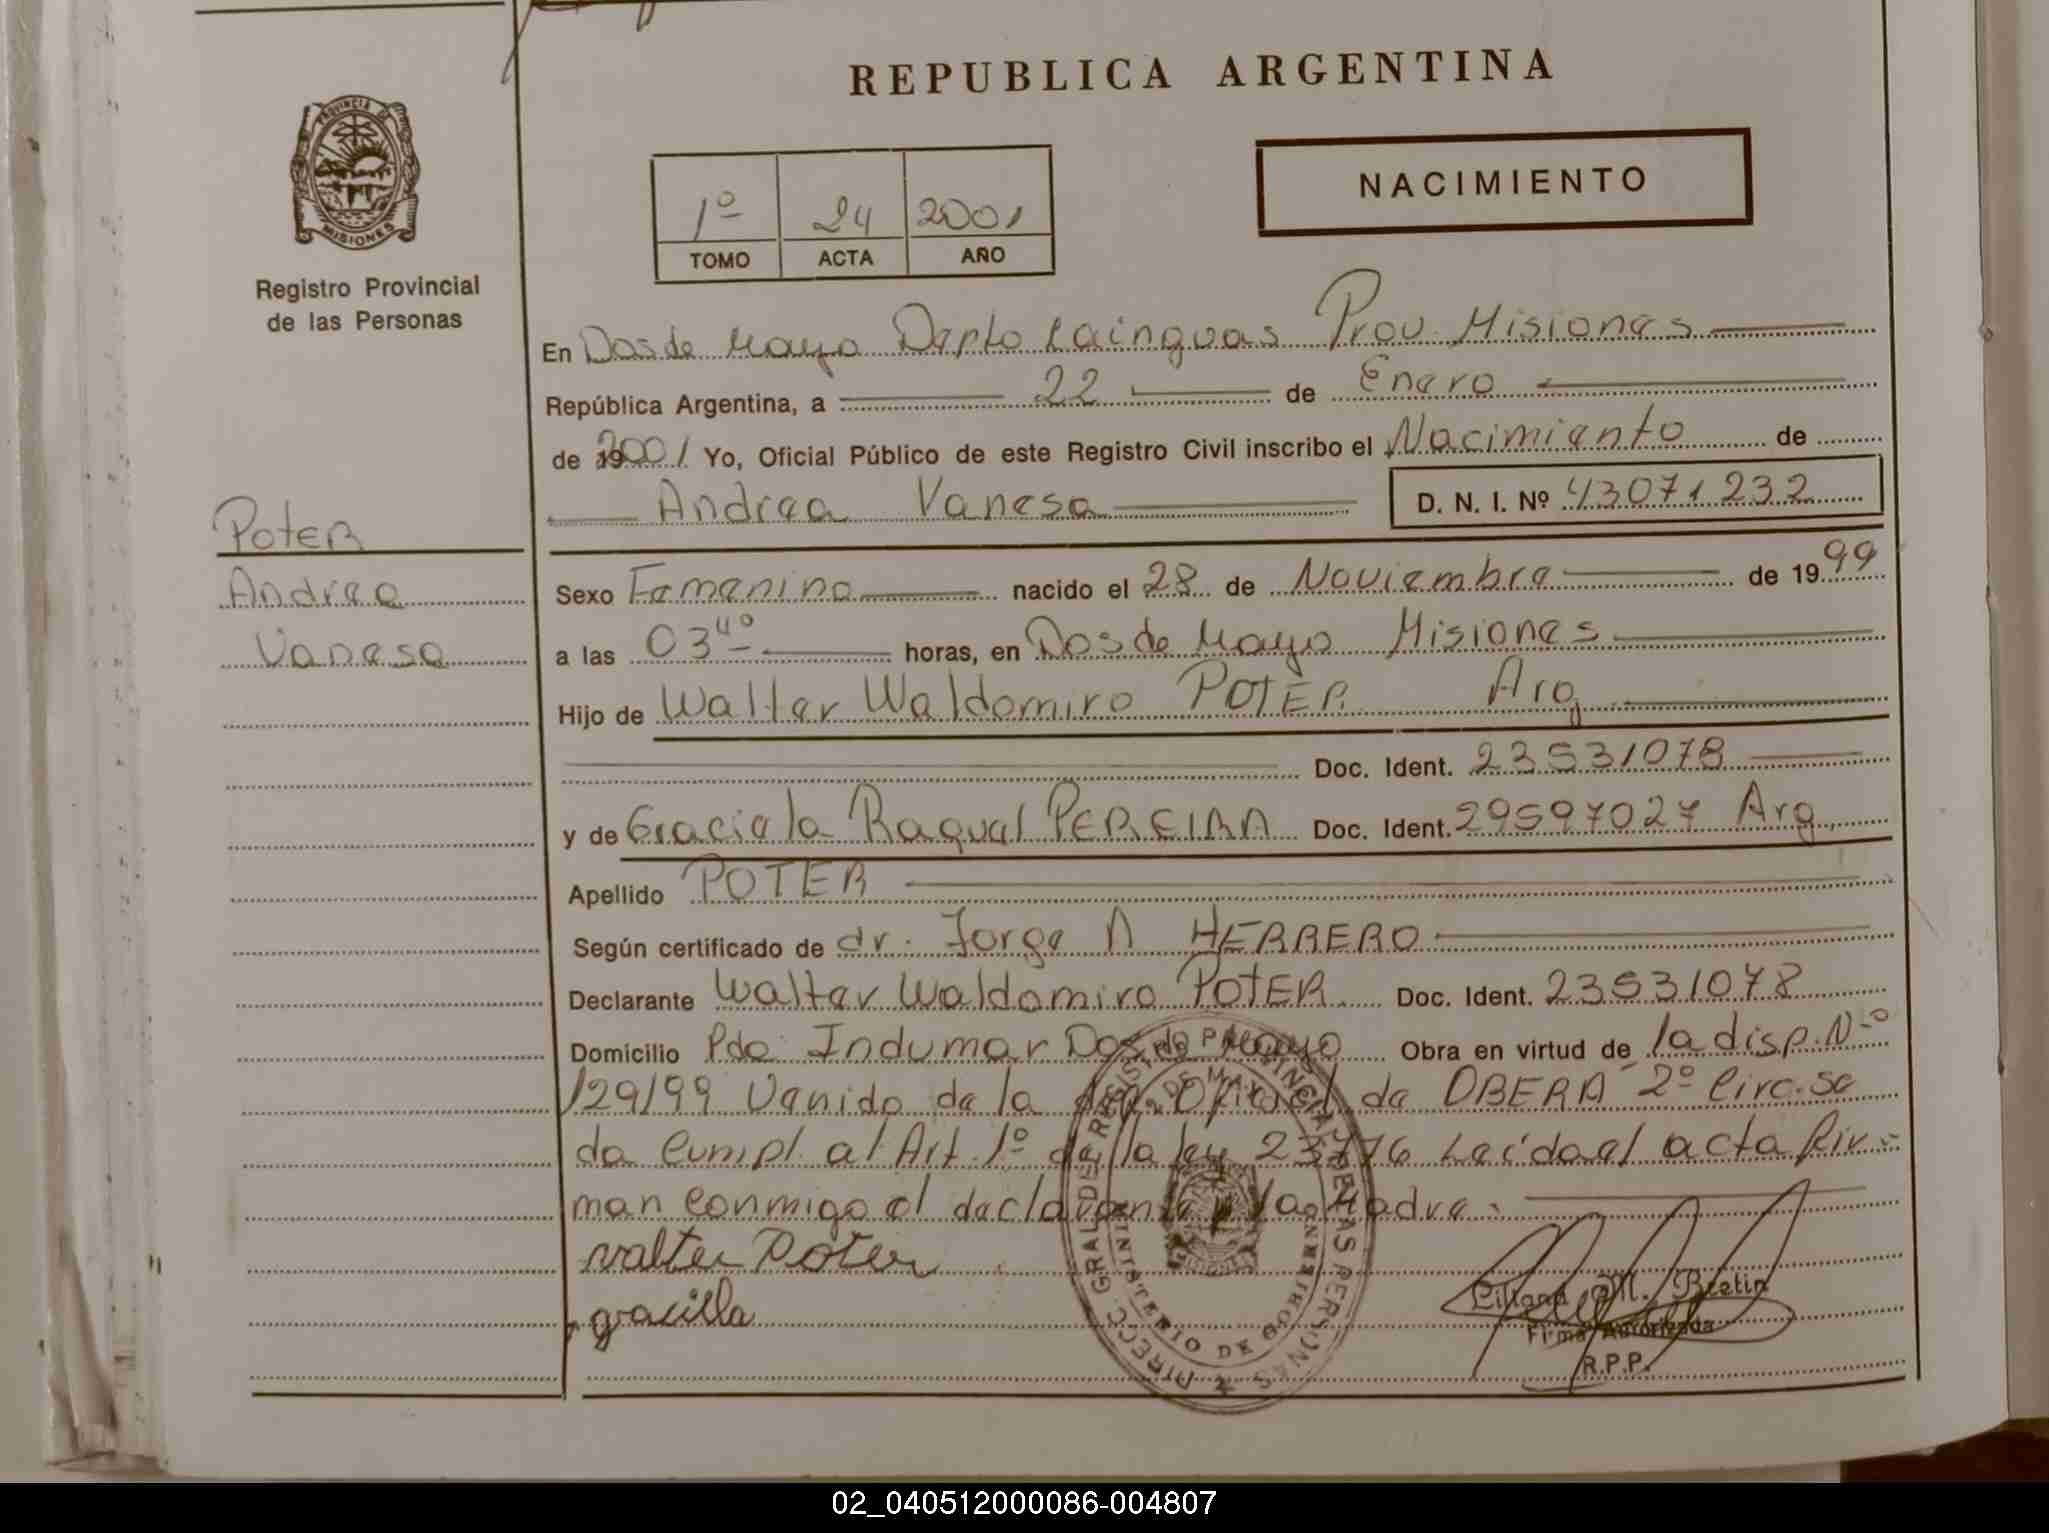 REPUBLICA ARGENTINA
PROVINCIA DE
MISIONES
Registro Provincial
de las Personas
NACIMIENTO
1º 24 2001
TOMO ACTA AÑO
En Dos de Mayo Depto Cainguas Prov. Misiones
República Argentina, a 22 de Enero
de 2001 Yo, Oficial Público de este Registro Civil inscribo el Nacimiento de
Andrea Vanesa D. N. I. Nº 43071232
Poter
Andrea
Vanesa
Sexo Femenino nacido el 28 de Noviembre de 1999
a las 03 40 horas, en Dos de Mayo Misiones
Hijo de Walter Waldomiro POTER Arg
Doc. Ident. 23531078
y de Graciela Raquel PEREIRA Doc. Ident. 29597027 Arg.
Apellido POTER
Según certificado de dr. Jorge A HERRERO
Declarante Walter Waldomiro POTER Doc. Ident. 23531078
Domicilio Pdo Indumar Dos de Mayo Obra en virtud de la disp. Nº
129/99 Venido de la de OBERA 2º Circ. se
da Cumpl. al Art. 1º de la ley 23776 Leída el acta fir-
man conmigo el declarante y la Madre.
Walter Poter
graciela
DIRECC. GRAL. DEL REGISTRO PROVINCIAL DE LAS PERSONAS
2 DE MAYO
MINISTERIO DE GOBIERNO
Liliana M. Bretin
Firma Autorizada
R.P.P.
02_040512000086-004807